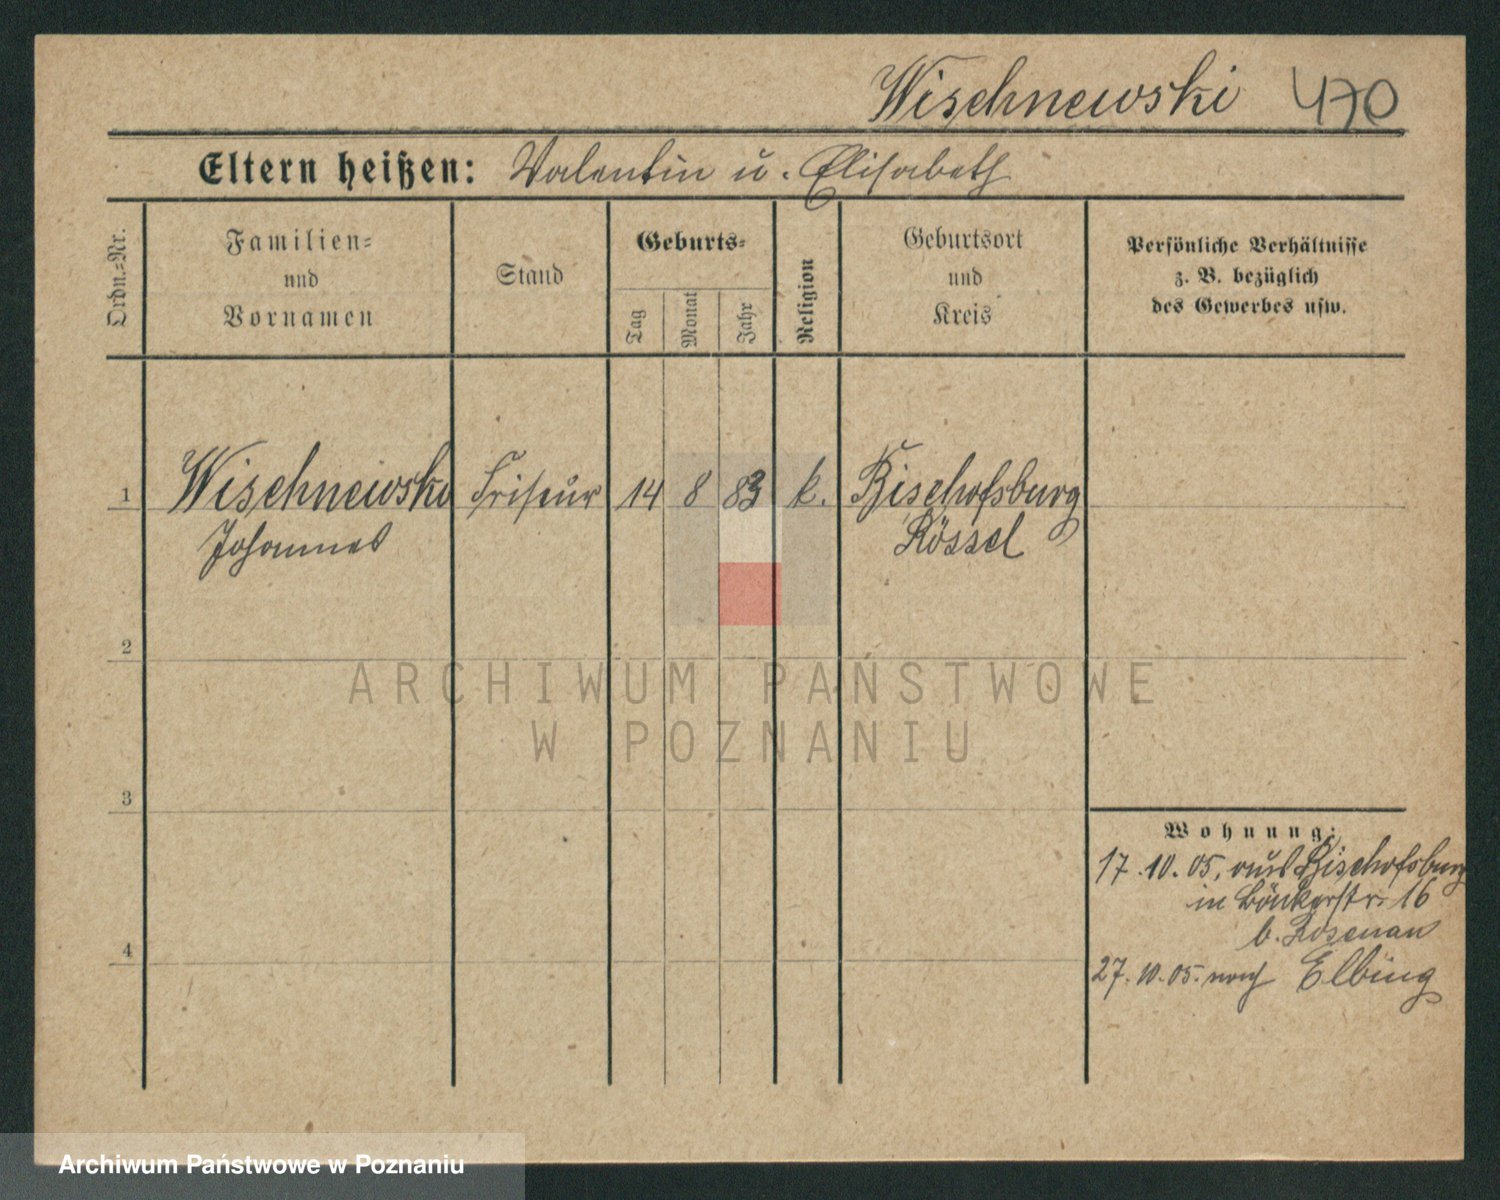 Wischnewski 470
Eltern heißen: Valentin u. Elisabeth
Ordn.=Nr.
Familien=
und
Vornamen
Stand
Geburts=
Tag
Monat
Jahr
Religion
Geburtsort
und
Kreis
Persönliche Verhältnisse
z. B. bezüglich
des Gewerbes usw.
1 Wischnewski Friseur 14 8 83 k. Bischofsburg
Johannes Rössel
2
ARCHIWUM PAŃSTWOWE
W POZNANIU
3
Wohnung:
17.10.05. aus Bischofsburg
in 16
b. Rosenau
4
27.10.05. nach Elbing
Archiwum Państwowe w Poznaniu